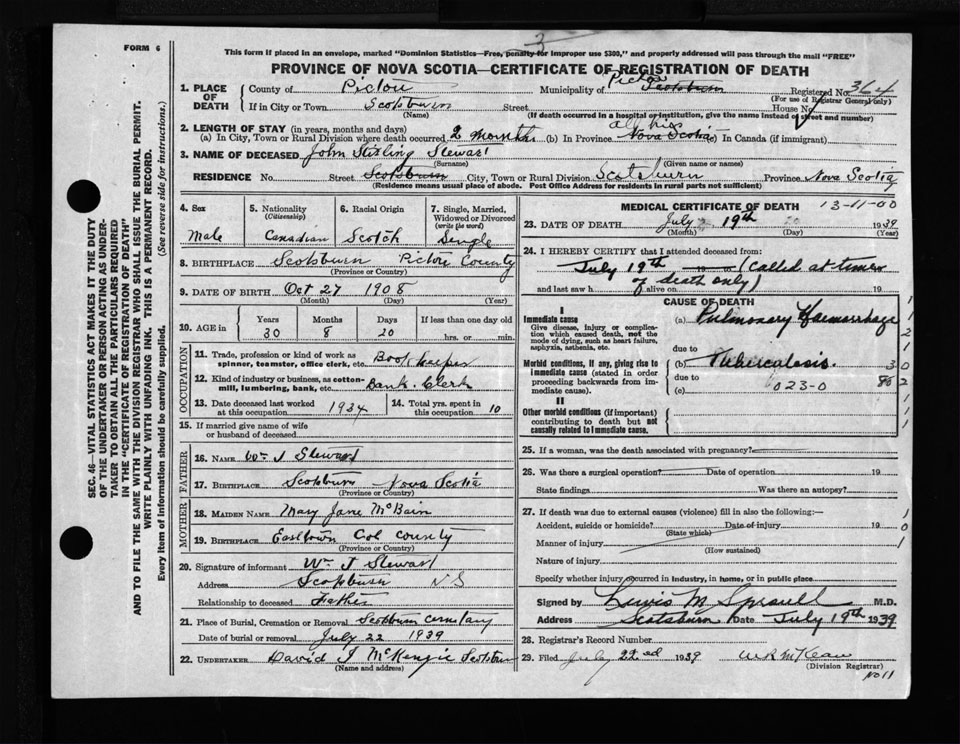 FORM 6
This form if placed in an envelope, marked "Dominion Statistics—Free, penalty for improper use $300," and properly addressed will pass through the mail "FREE"
3
PROVINCE OF NOVA SCOTIA—CERTIFICATE OF REGISTRATION OF DEATH
SEC. 46—VITAL STATISTICS ACT MAKES IT THE DUTY
OF THE UNDERTAKER OR PERSON ACTING AS UNDER-
TAKER TO OBTAIN ALL THE PARTICULARS REQUIRED
IN THE "CERTIFICATE OF REGISTRATION OF DEATH"
AND TO FILE THE SAME WITH THE DIVISION REGISTRAR WHO SHALL ISSUE THE BURIAL PERMIT.
WRITE PLAINLY WITH UNFADING INK. THIS IS A PERMANENT RECORD.
Every item of information should be carefully supplied. (See reverse side for instructions.)
1. PLACE OF DEATH
County of Pictou
Municipality of Pictou Scotsburn
Registered No. 364
(For use of Registrar General only)
If in City or Town Scotsburn Street House No.
(Name) (If death occurred in a hospital or institution, give the name instead of street and number)
2. LENGTH OF STAY (in years, months and days)
(a) In City, Town or Rural Division where death occurred 2 months (b) In Province all his Nova Scotia (c) In Canada (if immigrant)
3. NAME OF DECEASED John Stirling Stewart
(Surname) (Given name or names)
RESIDENCE No. Street Scotsburn City, Town or Rural Division Scotsburn Province Nova Scotia
(Residence means usual place of abode. Post Office Address for residents in rural parts not sufficient)
4. Sex
Male
5. Nationality
(Citizenship)
Canadian
6. Racial Origin
Scotch
7. Single, Married, Widowed or Divorced
(write the word)
Single
8. BIRTHPLACE Scotsburn Pictou County
(Province or Country)
9. DATE OF BIRTH Oct 27 1908
(Month) (Day) (Year)
10. AGE in
Years Months Days If less than one day old
30 8 20 hrs. or min.
OCCUPATION
11. Trade, profession or kind of work as
spinner, teamster, office clerk, etc. Book keeper
12. Kind of industry or business, as cotton-
mill, lumbering, bank, etc. Bank Clerk
13. Date deceased last worked
at this occupation 1934
14. Total yrs. spent in
this occupation 10
15. If married give name of wife
or husband of deceased
FATHER
16. NAME Wm J Stewart
17. BIRTHPLACE Scotsburn Nova Scotia
(Province or Country)
MOTHER
18. MAIDEN NAME Mary Jane McBain
19. BIRTHPLACE Easttown Col County
(Province or Country)
20. Signature of informant Wm J Stewart
Address Scotsburn N S
Relationship to deceased Father
21. Place of Burial, Cremation or Removal Scotsburn cemetary
Date of burial or removal July 22 1939
22. UNDERTAKER David J McKenzie Scotsburn
(Name and address)
MEDICAL CERTIFICATE OF DEATH 13-11-00
23. DATE OF DEATH July 19th 1939
(Month) (Day) (Year)
24. I HEREBY CERTIFY that I attended deceased from:
July 19th (Called at time
and last saw h alive on of death only) 19
CAUSE OF DEATH
I
Immediate cause
Give disease, injury or complica-
tion which caused death, not the
mode of dying, such as heart failure,
asphyxia, asthenia, etc.
(a) Pulmonary Haemorrhage
due to
Morbid conditions, if any, giving rise to
immediate cause (stated in order
proceeding backwards from im-
mediate cause).
(b) Tuberculosis.
due to
(c) 023-0
II
Other morbid conditions (if important)
contributing to death but not
causally related to immediate cause.
25. If a woman, was the death associated with pregnancy?
26. Was there a surgical operation? Date of operation 19
State findings Was there an autopsy?
27. If death was due to external causes (violence) fill in also the following:—
Accident, suicide or homicide? Date of injury 19
(State which)
Manner of injury
(How sustained)
Nature of injury
Specify whether injury occurred in industry, in home, or in public place
Signed by Lewis M Sproull M.D.
Address Scotsburn Date July 19th 1939
28. Registrar's Record Number
29. Filed July 22nd 1939 W R McKean
(Division Registrar)
No 11